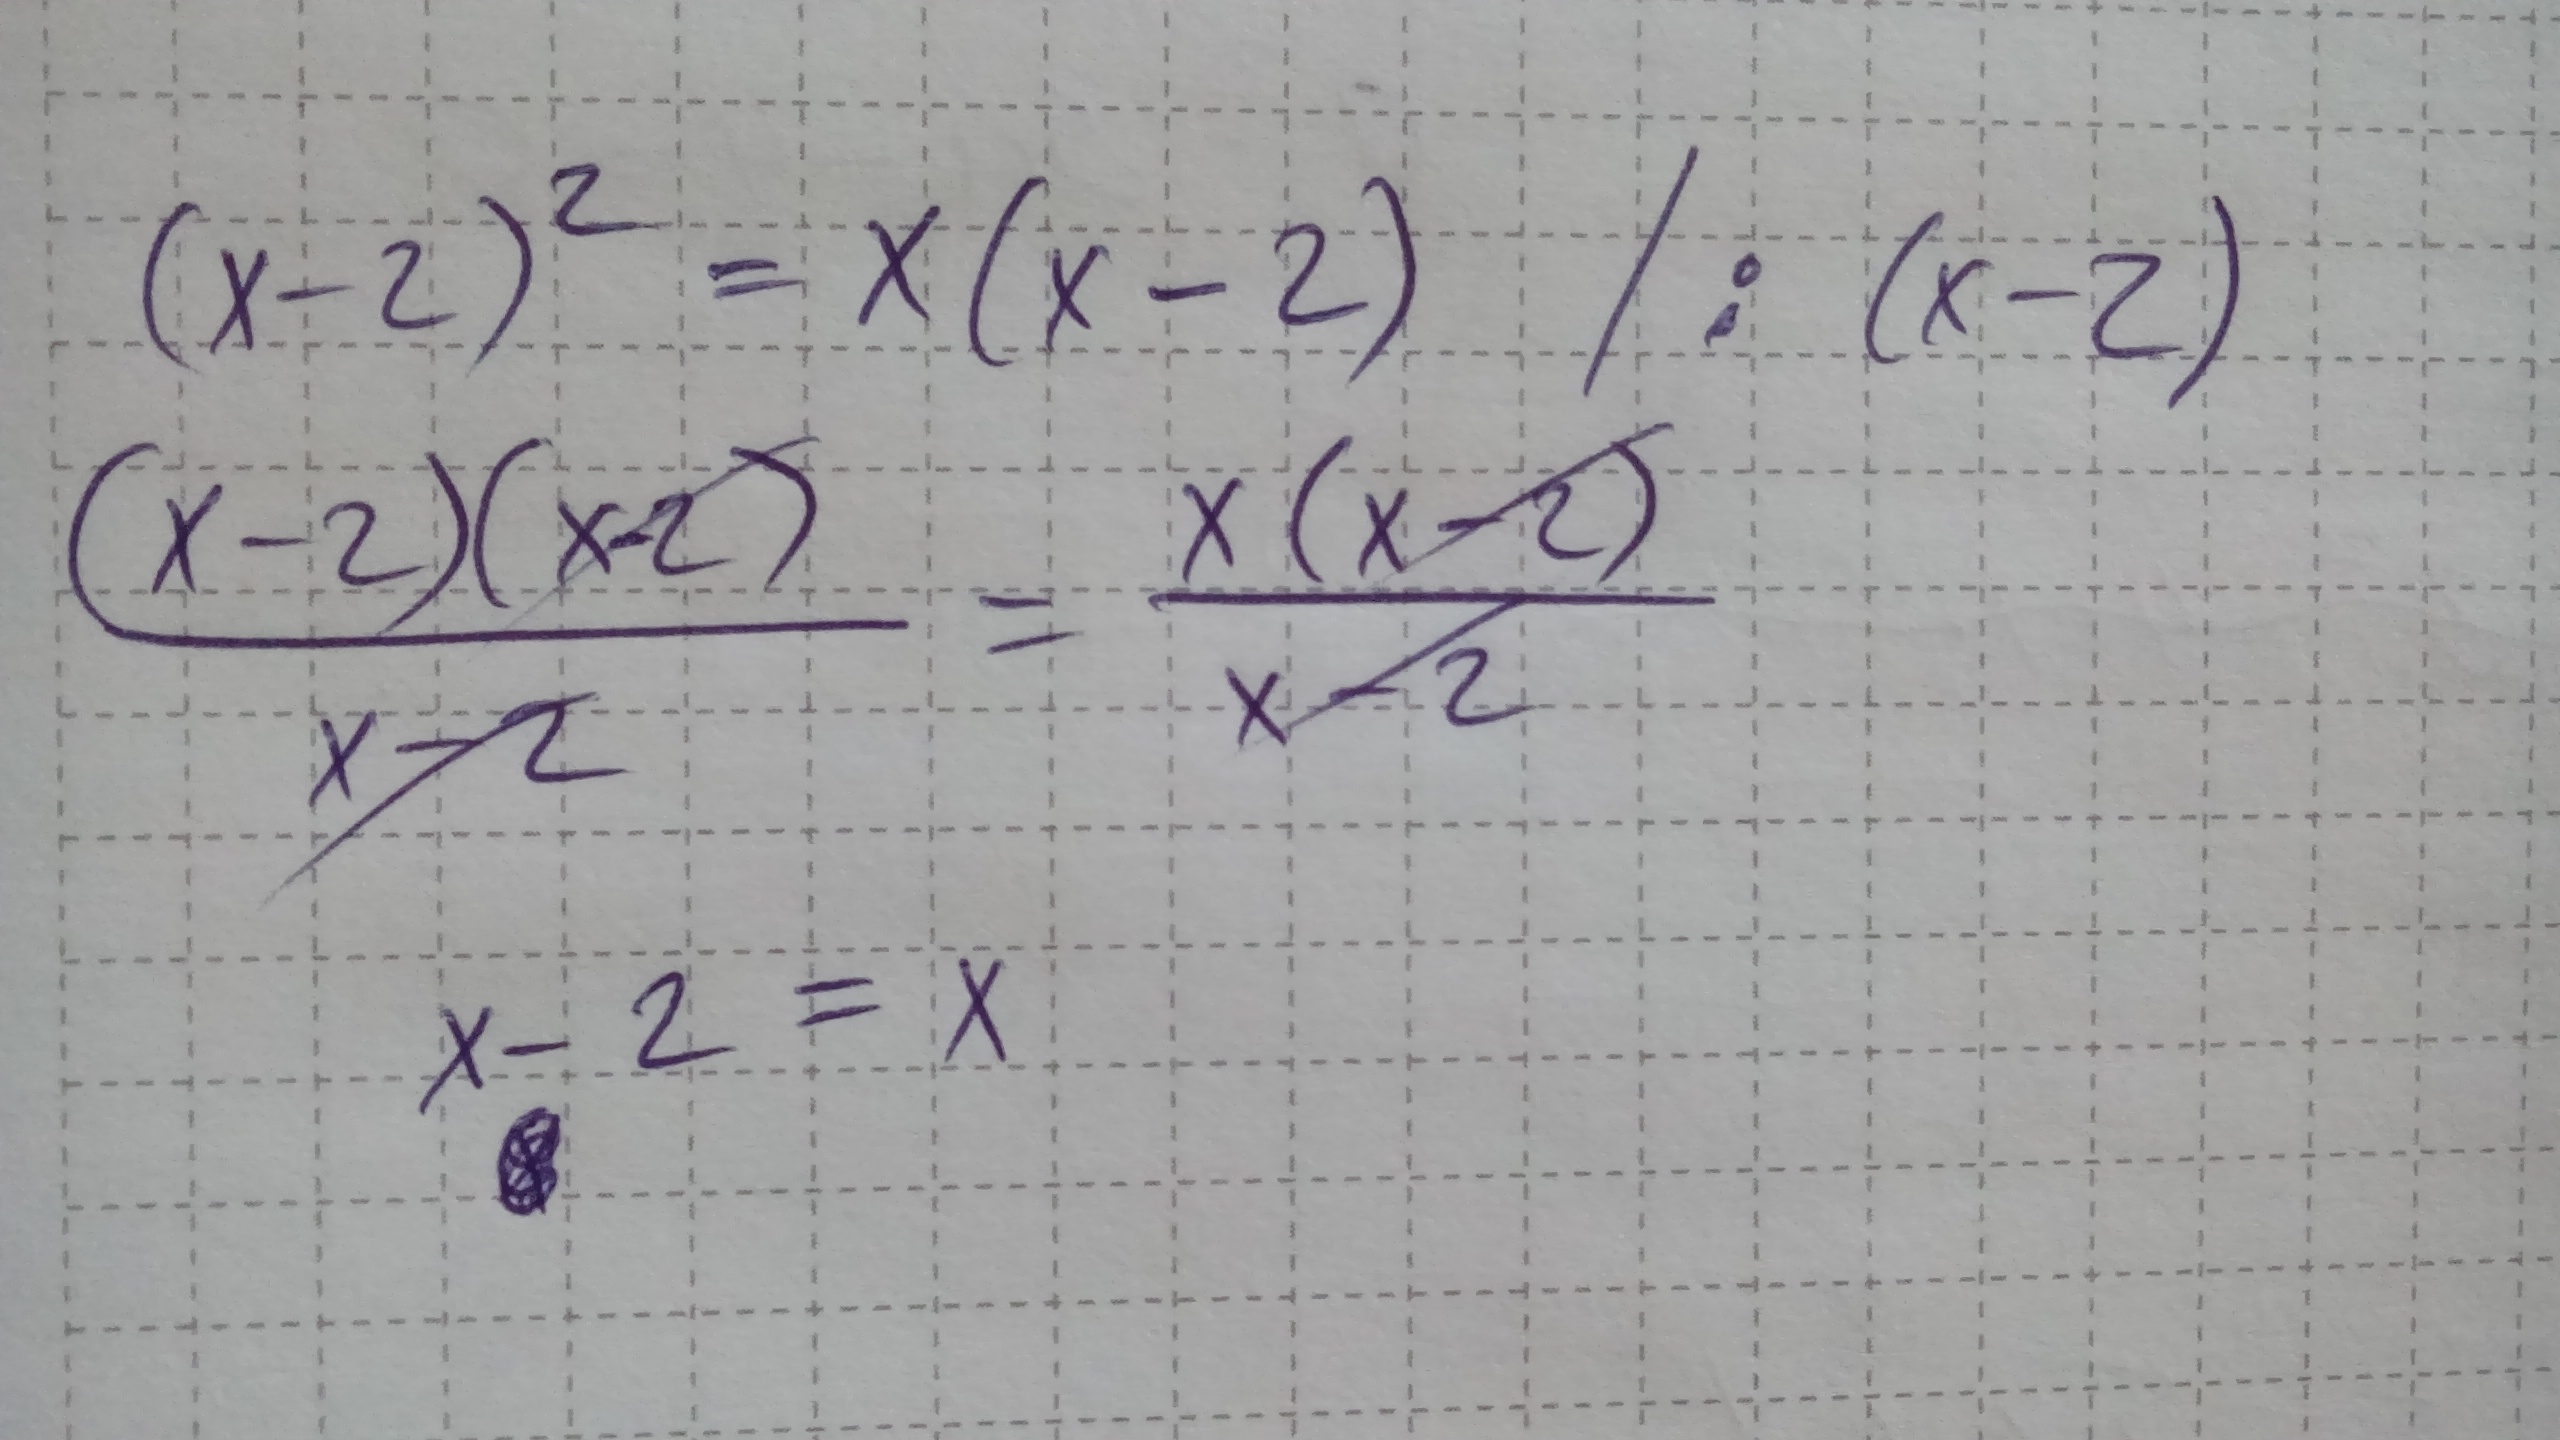 (x-2)² = x(x-2) / : (x-2)
(x-2)(x-2)/x-2 = x(x-2)/x-2
x-2 = x